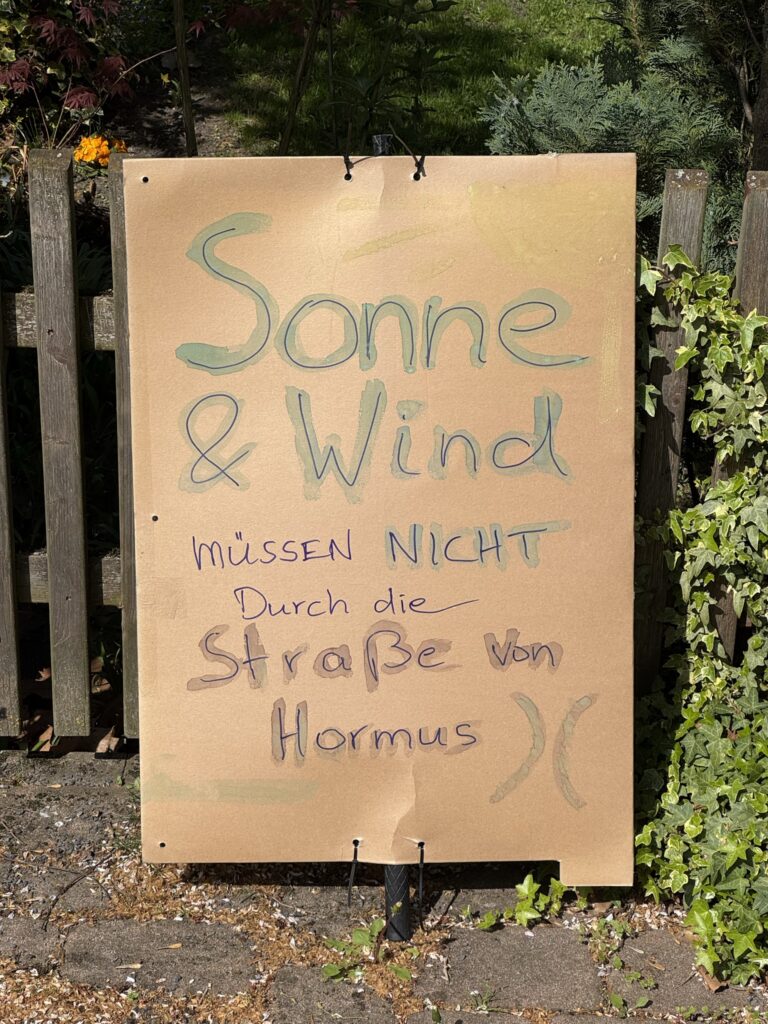 Sonne
& Wind
MÜSSEN NICHT
Durch die
Straße von
Hormus )(